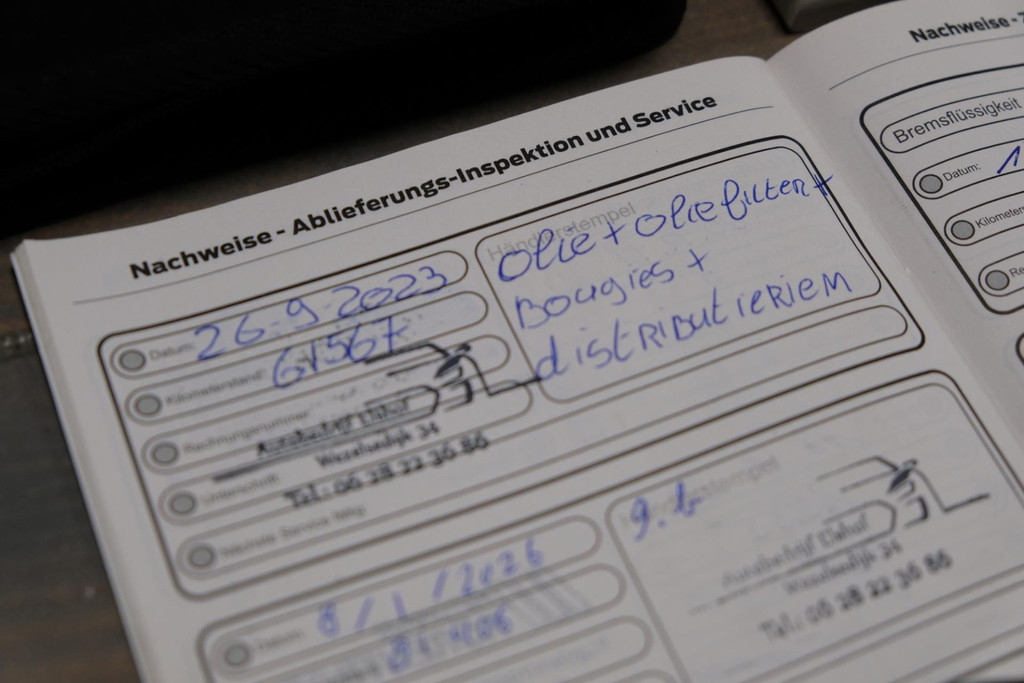 Nachweise - Ablieferungs-Inspektion und Service
Datum: 26-9-2023
Kilometerstand: 61567
Rechnungsnummer
Unterschrift:
Nächste Service fällig
Tel.: 06 28 22 36 86
Händlerstempel
Olie + Oliefilter +
Bougies +
distributieriem
Datum: 8/1/2026
Händlerstempel
g.b
Tel.: 06 28 22 36 86
Nachweise -
Bremsflüssigkeit
Datum: 1
Kilometer
Re